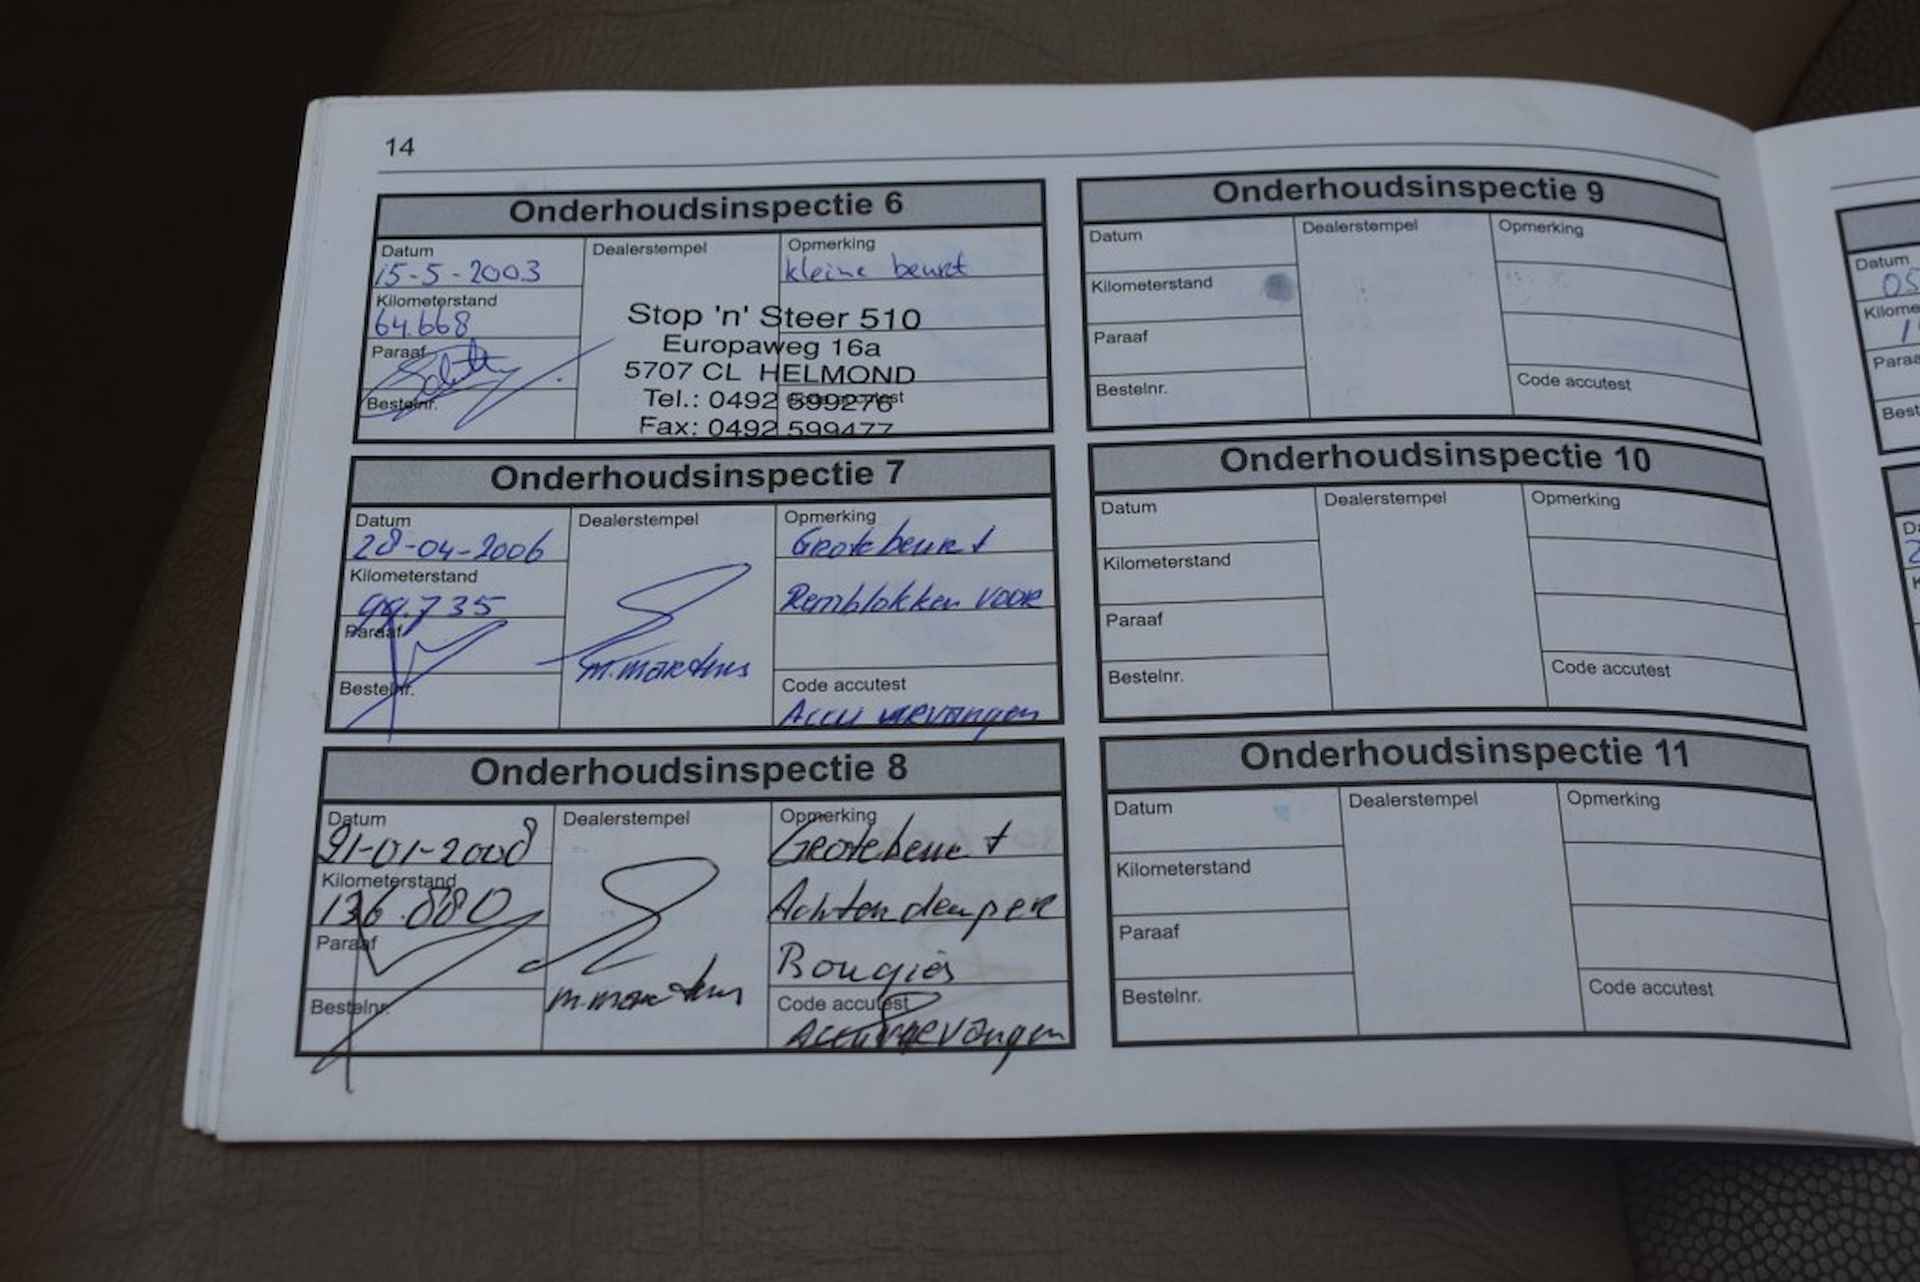 14
Onderhoudsinspectie 6
Datum
15-5-2003
Kilometerstand
64.668
Paraaf
Bestelnr.
Dealerstempel
Stop 'n' Steer 510
Europaweg 16a
5707 CL HELMOND
Tel.: 0492 599276
Fax: 0492 599477
Opmerking
kleine beurt
Code accutest
Onderhoudsinspectie 7
Datum
28-04-2006
Kilometerstand
99.735
Paraaf
Bestelnr.
Dealerstempel
m.martens
Opmerking
Grote beurt
Remblokken voor
Code accutest
Accu vervangen
Onderhoudsinspectie 8
Datum
-01-2008
Kilometerstand
136.880
Paraaf
Bestelnr.
Dealerstempel
m.martens
Opmerking
Grote beurt
Achter dempers
Bougies
Code accutest
Accu vervangen
Onderhoudsinspectie 9
Datum
Kilometerstand
Paraaf
Bestelnr.
Dealerstempel
Opmerking
Code accutest
Onderhoudsinspectie 10
Datum
Kilometerstand
Paraaf
Bestelnr.
Dealerstempel
Opmerking
Code accutest
Onderhoudsinspectie 11
Datum
Kilometerstand
Paraaf
Bestelnr.
Dealerstempel
Opmerking
Code accutest
Datum
05
Kilome
Paraa
Best